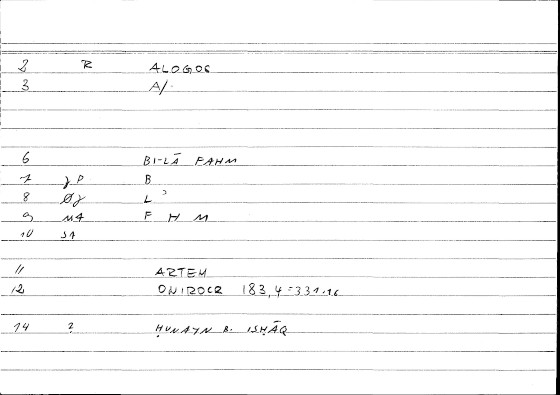 2 R ALOGOS
3 A/.
6 BI-LĀ FAHM
7 γP B
8 Øγ L ʾ
9 MA F H M
10 SA
11 ARTEM
12 ONIROCR 183,4=331.16
14 ? ḤUNAYN B. ISḤĀQ